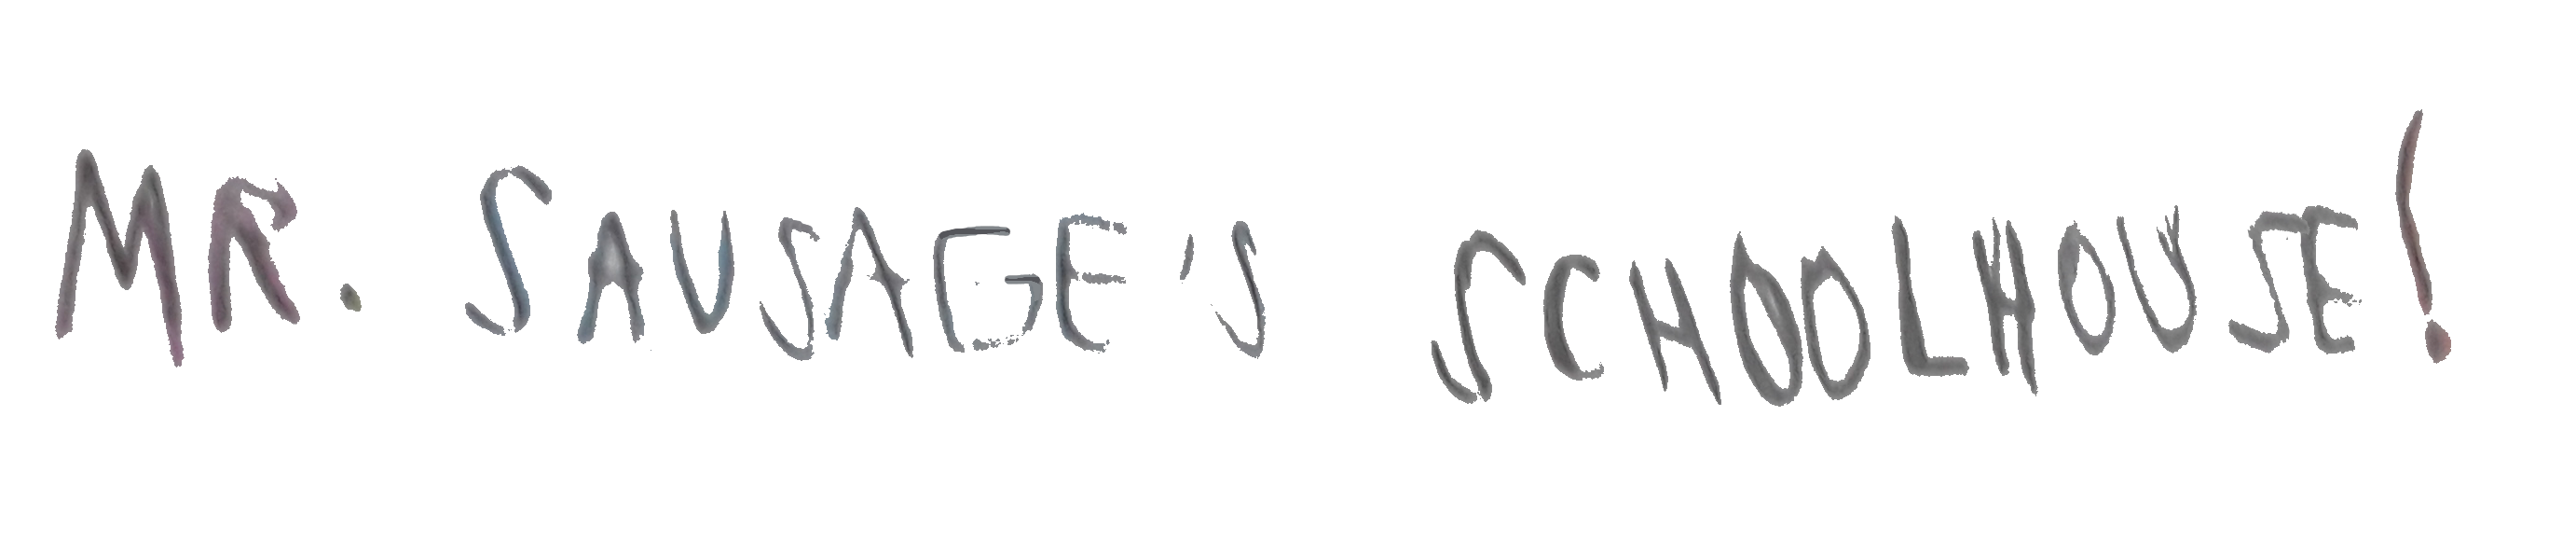 MR. SAUSAGE'S SCHOOLHOUSE!